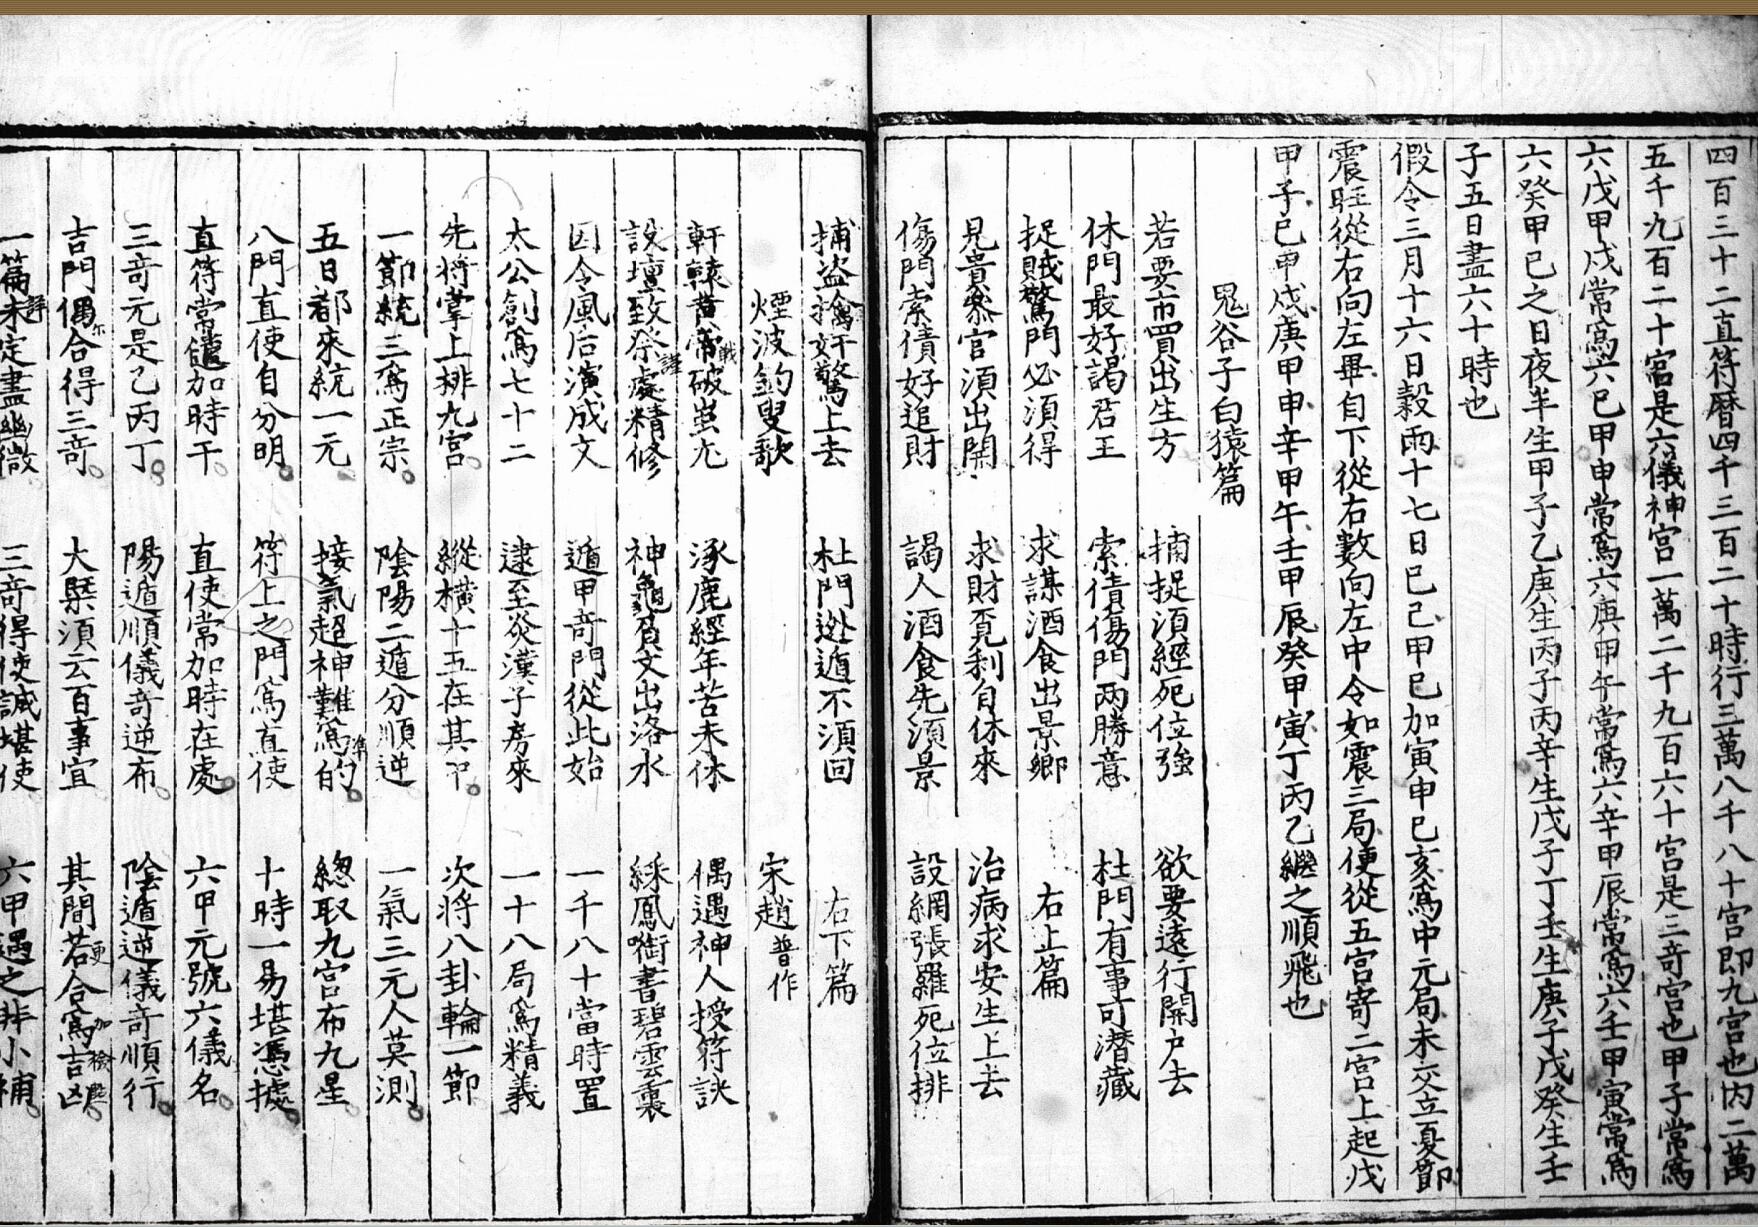 四百三十二直符曆四千三百二十時行三萬八千八十宮即九宮也內二萬
五千九百二十宮是六儀神宮一萬二千九百六十宮是三奇宮也甲子常爲
六戊甲戌常爲六己甲申常爲六庚甲午常爲六辛甲辰常爲六壬甲寅常爲
六癸甲己之日夜半生甲子乙庚生丙子丙辛生戊子丁壬生庚子戊癸生壬
子五日盡六十時也
假令三月十六日穀雨十七日巳己甲巳加寅申巳亥爲中元局未交立夏節
震旺從右向左畢自下從右數向左中令如震三局便從五宮寄二宮上起戊
甲子己甲戌庚甲申辛甲午壬甲辰癸甲寅丁丙乙繼之順飛也
鬼谷子白猿篇
若要市買出生方　捕捉須經死位強　欲要遠行開戶去
休門最好謁君王　索債傷門兩勝意　杜門有事可潛藏
捉賊驚門必須得　求謀酒食出景鄉　右上篇
見貴參官須出開　求財覓利自休來　治病求安生上去
傷門索債好追財　謁人酒食先須景　設網張羅死位排
捕盗擒奸驚上去　杜門逃遁不須回　右下篇
煙波釣叟歌　宋趙普作
軒轅黃帝戰破蚩尤　涿鹿經年苦未休　偶遇神人授符訣
設壇致祭謹處精修　神龜負文出洛水　綵鳳啣書碧雲裏
因令風后演成文　遁甲奇門從此始　一千八十當時置
太公創爲七十二　逮至炎漢子房來　一十八局爲精義
先將掌上排九宮　縱橫十五在其中　次將八卦輪一節
一節統三爲正宗　陰陽二遁分順逆　一氣三元人莫測
五日都來統一元　接氣超神難爲準的　總取九宮布九星
八門直使自分明　符上之門爲直使　十時一易堪憑據
直符常遣加時干　直使常加時在處　六甲元號六儀名
三奇元是乙丙丁　陽遁順儀奇逆布　陰遁逆儀奇順行
吉門偶尔合得三奇　大槩須云百事宜　其間若更合爲加吉檢凶
一篇未詳定盡幽微　三奇得使誠堪使　六甲遇之非小補